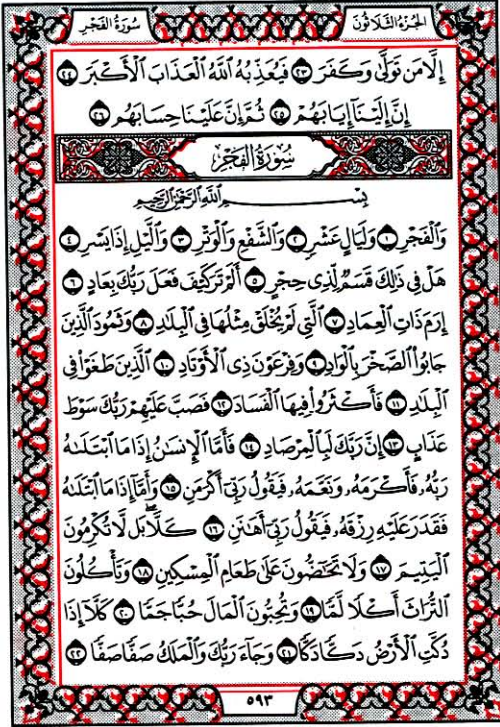 الجزء الثلاثون
سورة الفجر
إِلَّا مَن تَوَلَّىٰ وَكَفَرَ ٢٣ فَيُعَذِّبُهُ ٱللَّهُ ٱلْعَذَابَ ٱلْأَكْبَرَ ٢٤
إِنَّ إِلَيْنَآ إِيَابَهُمْ ٢٥ ثُمَّ إِنَّ عَلَيْنَا حِسَابَهُم ٢٦
سُورَةُ الفَجْرِ
بِسْمِ ٱللَّهِ ٱلرَّحْمَٰنِ ٱلرَّحِيمِ
وَٱلْفَجْرِ ١ وَلَيَالٍ عَشْرٍ ٢ وَٱلشَّفْعِ وَٱلْوَتْرِ ٣ وَٱلَّيْلِ إِذَا يَسْرِ ٤
هَلْ فِى ذَٰلِكَ قَسَمٌ لِّذِى حِجْرٍ ٥ أَلَمْ تَرَ كَيْفَ فَعَلَ رَبُّكَ بِعَادٍ ٦
إِرَمَ ذَاتِ ٱلْعِمَادِ ٧ ٱلَّتِى لَمْ يُخْلَقْ مِثْلُهَا فِى ٱلْبِلَٰدِ ٨ وَثَمُودَ ٱلَّذِينَ
جَابُوا۟ ٱلصَّخْرَ بِٱلْوَادِ ٩ وَفِرْعَوْنَ ذِى ٱلْأَوْتَادِ ١٠ ٱلَّذِينَ طَغَوْا۟ فِى
ٱلْبِلَٰدِ ١١ فَأَكْثَرُوا۟ فِيهَا ٱلْفَسَادَ ١٢ فَصَبَّ عَلَيْهِمْ رَبُّكَ سَوْطَ
عَذَابٍ ١٣ إِنَّ رَبَّكَ لَبِٱلْمِرْصَادِ ١٤ فَأَمَّا ٱلْإِنسَٰنُ إِذَا مَا ٱبْتَلَىٰهُ
رَبُّهُۥ فَأَكْرَمَهُۥ وَنَعَّمَهُۥ فَيَقُولُ رَبِّىٓ أَكْرَمَنِ ١٥ وَأَمَّآ إِذَا مَا ٱبْتَلَىٰهُ
فَقَدَرَ عَلَيْهِ رِزْقَهُۥ فَيَقُولُ رَبِّىٓ أَهَٰنَنِ ١٦ كَلَّا بَل لَّا تُكْرِمُونَ
ٱلْيَتِيمَ ١٧ وَلَا تَحَٰٓضُّونَ عَلَىٰ طَعَامِ ٱلْمِسْكِينِ ١٨ وَتَأْكُلُونَ
ٱلتُّرَاثَ أَكْلًا لَّمًّا ١٩ وَتُحِبُّونَ ٱلْمَالَ حُبًّا جَمًّا ٢٠ كَلَّآ إِذَا
دُكَّتِ ٱلْأَرْضُ دَكًّا دَكًّا ٢١ وَجَآءَ رَبُّكَ وَٱلْمَلَكُ صَفًّا صَفًّا ٢٢
٥٩٣